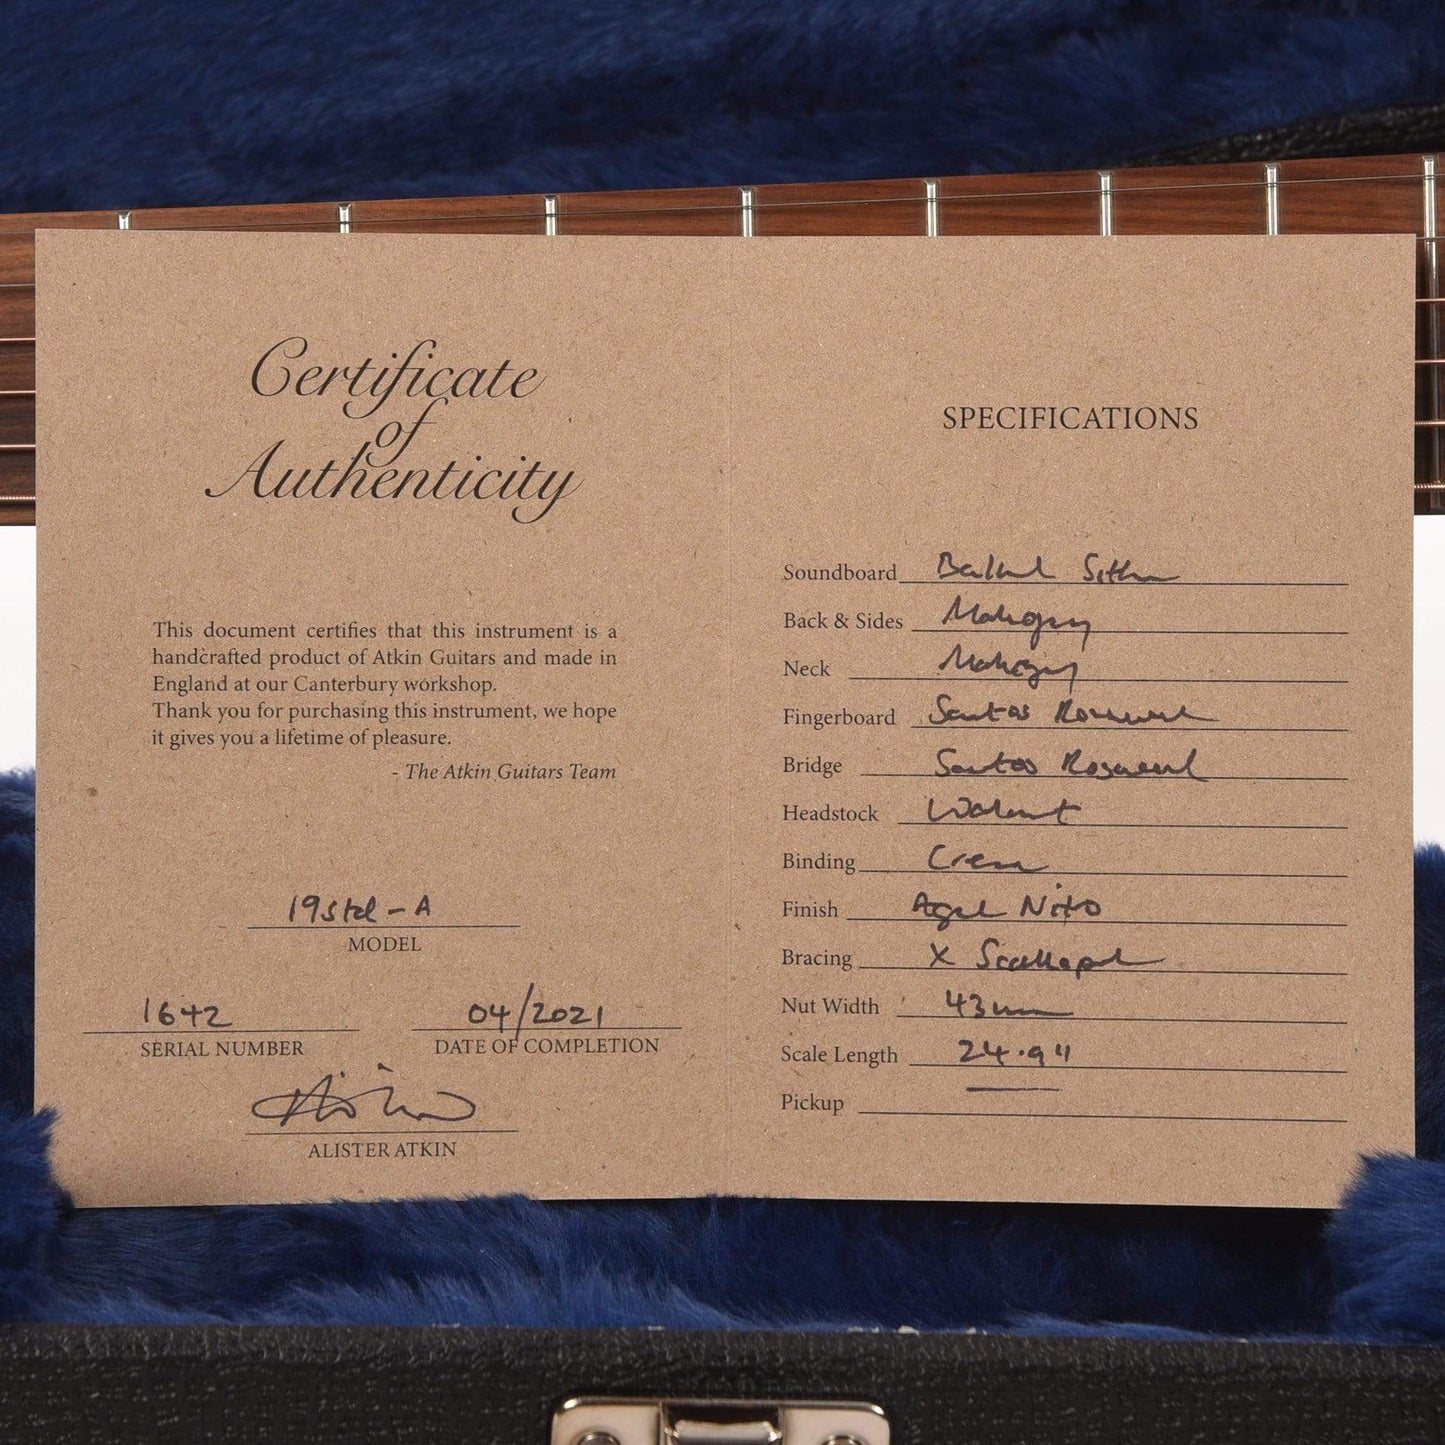 Certificate
of
Authenticity
This document certifies that this instrument is a
handcrafted product of Atkin Guitars and made in
England at our Canterbury workshop.
Thank you for purchasing this instrument, we hope
it gives you a lifetime of pleasure.
- The Atkin Guitars Team
19std-A
MODEL
1642
SERIAL NUMBER
04/2021
DATE OF COMPLETION
ALISTER ATKIN
SPECIFICATIONS
Soundboard Baked Sitka
Back & Sides Mahogany
Neck Mahogany
Fingerboard Santos Rosewood
Bridge Santos Rosewood
Headstock Walnut
Binding Cream
Finish Aged Nitro
Bracing X Scalloped
Nut Width 43mm
Scale Length 24.9"
Pickup —